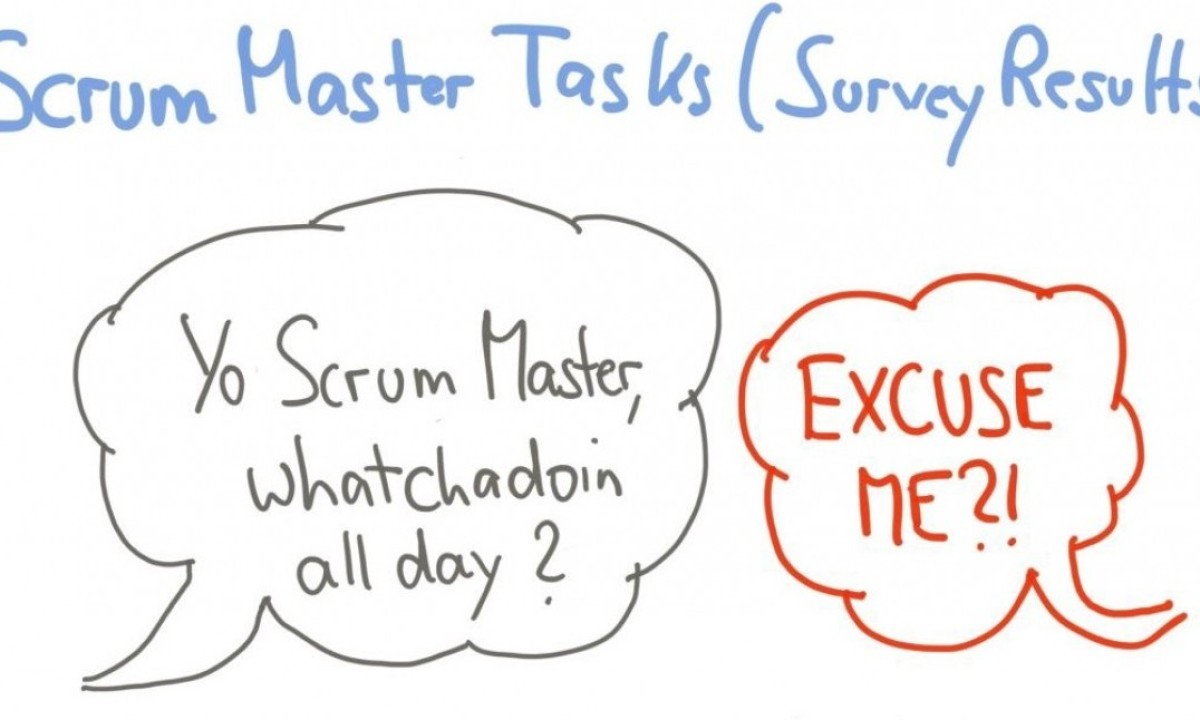 Scrum Master Tasks (Survey Results
Yo Scrum Master,
whatchadoin
all day?
EXCUSE
ME?!